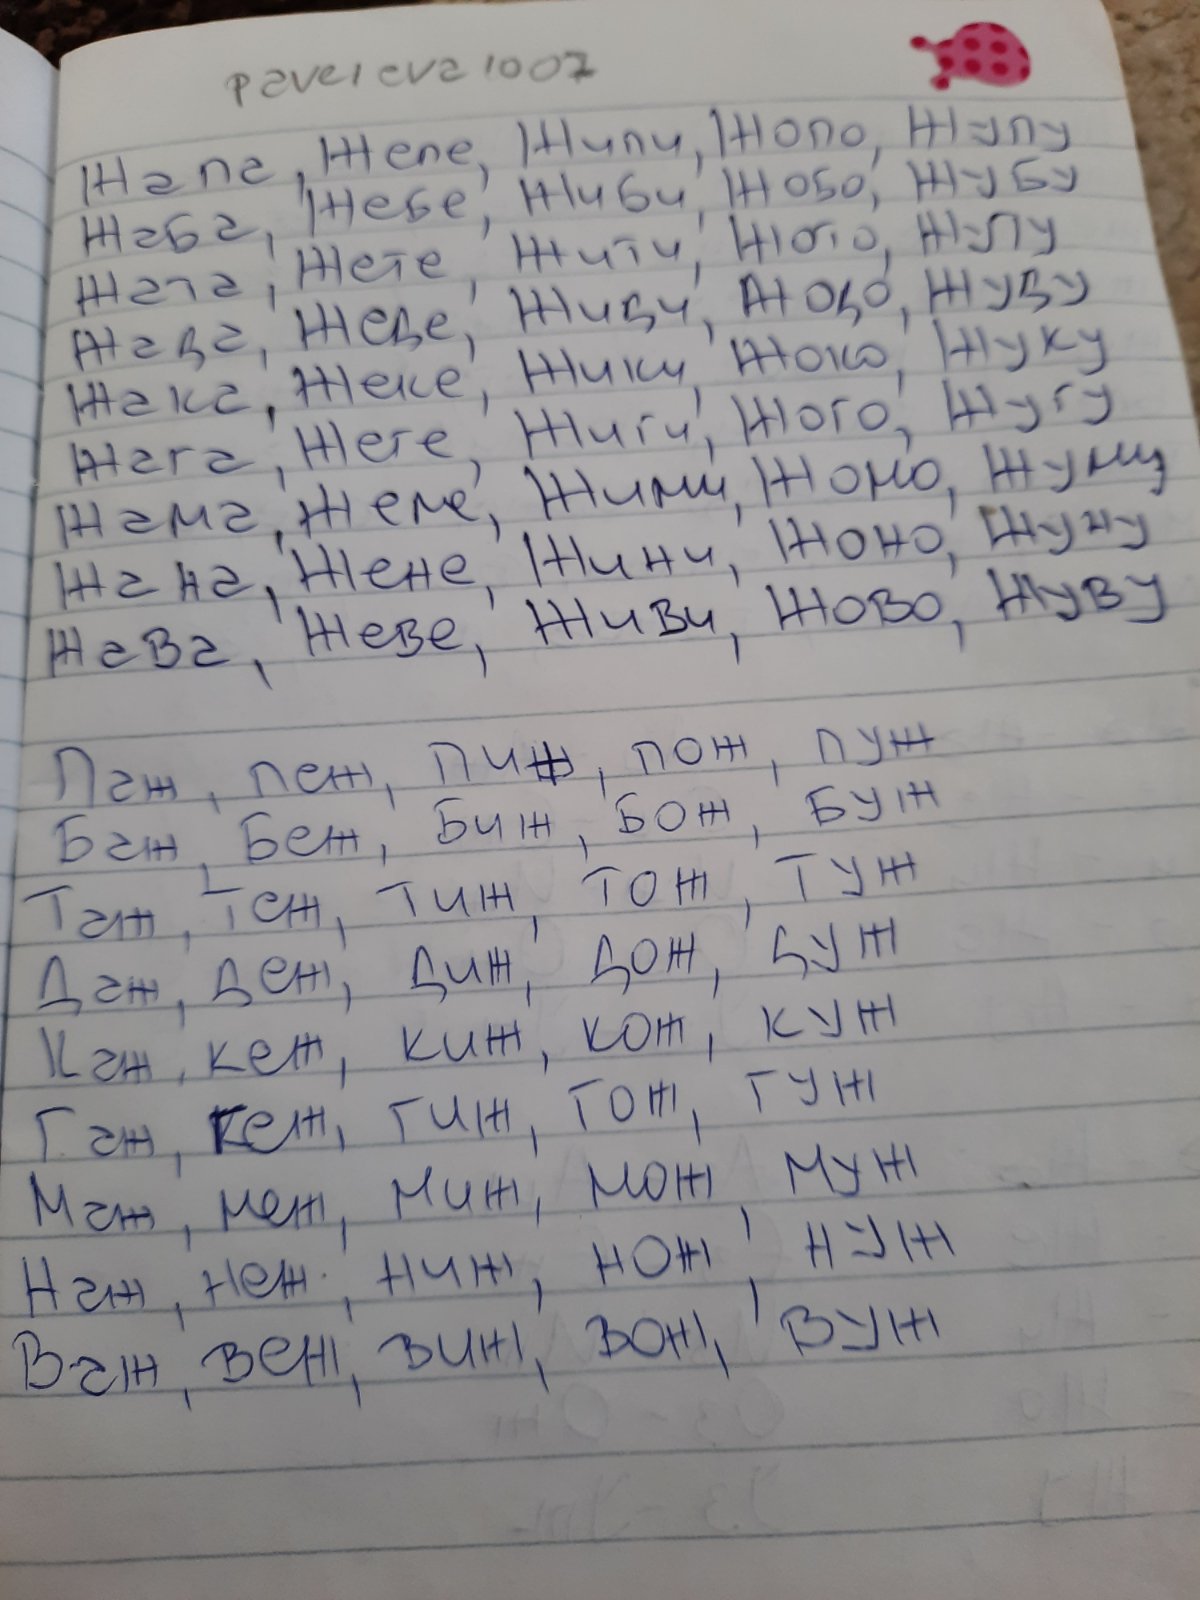 paveleva1007
Жапа, Жепе, Жипи, Жопо, Жупу
Жаба, Жебе, Жиби, Жобо, Жубу
Жата, Жете, Жити, Жото, Жупу
Жада, Жеде, Жиди, Жодо, Жуду
Жака, Жеке, Жики, Жоко, Жуку
Жага, Жеге, Жиги, Жого, Жугу
Жама, Жеме, Жими, Жомо, Жуму
Жана, Жене, Жини, Жоно, Жуну
Жава, Жеве, Живи, Жово, Жуву
Паж, пеж, пиж, пож, пуж
Баж, Беж, Биж, Бож, Буж
Таж, Теж, Тиж, Тож, Туж
Даж, Деж, Диж, Дож, Дуж
Каж, кеж, киж, кож, куж
Гаж, геж, гиж, гож, гуж
Маж, меж, миж, мож, муж
Наж, неж, ниж, нож, нуж
Важ, веж, виж, вож, вуж